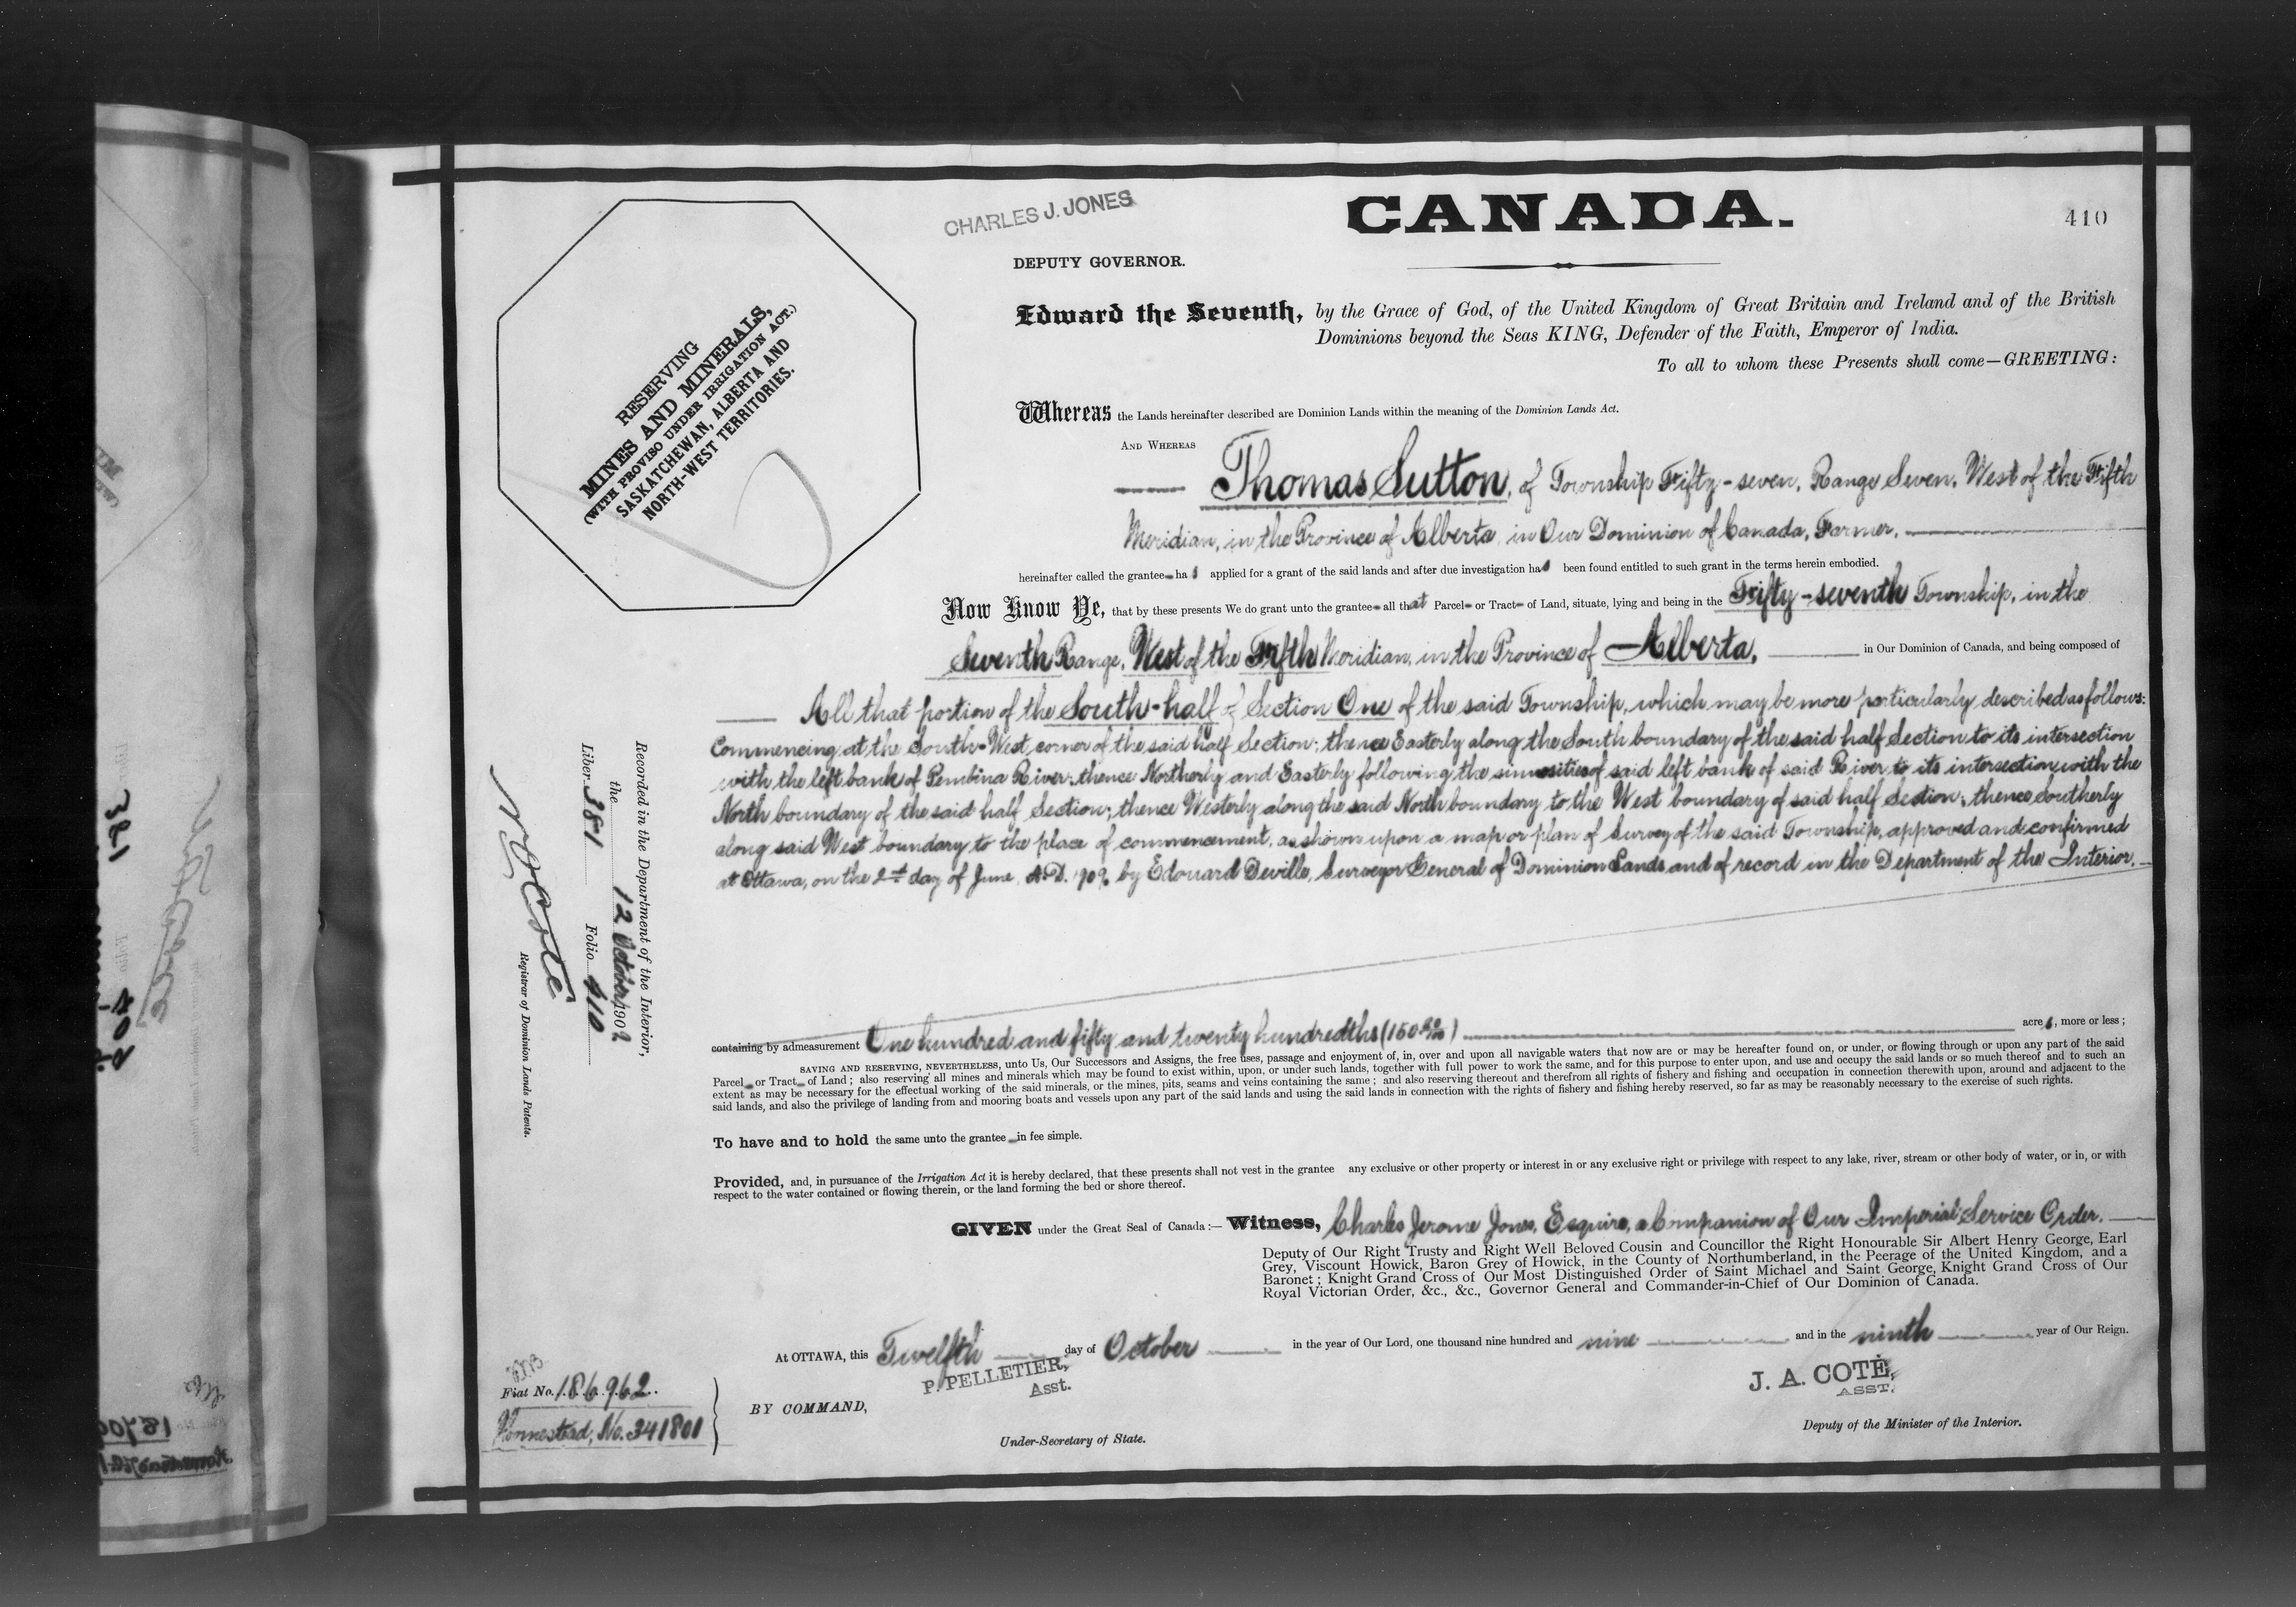 CHARLES J. JONES
CANADA.
410
DEPUTY GOVERNOR.
RESERVING
MINES AND MINERALS,
(WITH PROVISO UNDER IRRIGATION ACT.)
SASKATCHEWAN, ALBERTA AND
NORTH-WEST TERRITORIES.
Edward the Seventh, by the Grace of God, of the United Kingdom of Great Britain and Ireland and of the British
Dominions beyond the Seas KING, Defender of the Faith, Emperor of India.
To all to whom these Presents shall come—GREETING:
Whereas the Lands hereinafter described are Dominion Lands within the meaning of the Dominion Lands Act.
AND WHEREAS
Thomas Sutton, of Township Fifty-seven, Range Seven, West of the Fifth
Meridian, in the Province of Alberta, in Our Dominion of Canada, Farmer,
hereinafter called the grantee ha s applied for a grant of the said lands and after due investigation ha s been found entitled to such grant in the terms herein embodied.
Now Know Ye, that by these presents We do grant unto the grantee all that Parcel or Tract of Land, situate, lying and being in the Fifty-seventh Township, in the
Seventh Range, West of the Fifth Meridian, in the Province of Alberta, in Our Dominion of Canada, and being composed of
All that portion of the South-half of Section One of the said Township, which may be more particularly described as follows:
Commencing at the South-West corner of the said half Section; thence Easterly along the South boundary of the said half Section to its intersection
with the left bank of Pembina River; thence Northerly and Easterly following the sinuosities of said left bank of said River to its intersection with the
North boundary of the said half Section; thence Westerly along the said North boundary to the West boundary of said half Section; thence Southerly
along said West boundary to the place of commencement, as shown upon a map or plan of Survey of the said Township, approved and confirmed
at Ottawa, on the 2nd day of June, A.D. 1909, by Edouard Deville, Surveyor General of Dominion Lands and of record in the Department of the Interior.
containing by admeasurement One hundred and fifty and twenty hundredths (150 20/100) acre s, more or less;
SAVING AND RESERVING, NEVERTHELESS, unto Us, Our Successors and Assigns, the free uses, passage and enjoyment of, in, over and upon all navigable waters that now are or may be hereafter found on, or under, or flowing through or upon any part of the said
Parcel or Tract of Land; also reserving all mines and minerals which may be found to exist within, upon, or under such lands, together with full power to work the same, and for this purpose to enter upon, and use and occupy the said lands or so much thereof and to such an
extent as may be necessary for the effectual working of the said minerals, or the mines, pits, seams and veins containing the same; and also reserving thereout and therefrom all rights of fishery and fishing and occupation in connection therewith upon, around and adjacent to the
said lands, and also the privilege of landing from and mooring boats and vessels upon any part of the said lands and using the said lands in connection with the rights of fishery and fishing hereby reserved, so far as may be reasonably necessary to the exercise of such rights.
To have and to hold the same unto the grantee in fee simple.
Provided, and, in pursuance of the Irrigation Act it is hereby declared, that these presents shall not vest in the grantee any exclusive or other property or interest in or any exclusive right or privilege with respect to any lake, river, stream or other body of water, or in, or with
respect to the water contained or flowing therein, or the land forming the bed or shore thereof.
GIVEN under the Great Seal of Canada:— Witness, Charles Jerome Jones, Esquire, a Companion of Our Imperial Service Order.
Deputy of Our Right Trusty and Right Well Beloved Cousin and Councillor the Right Honourable Sir Albert Henry George, Earl
Grey, Viscount Howick, Baron Grey of Howick, in the County of Northumberland, in the Peerage of the United Kingdom, and a
Baronet; Knight Grand Cross of Our Most Distinguished Order of Saint Michael and Saint George, Knight Grand Cross of Our
Royal Victorian Order, &c., &c., Governor General and Commander-in-Chief of Our Dominion of Canada.
At OTTAWA, this Twelfth day of October in the year of Our Lord, one thousand nine hundred and nine and in the ninth year of Our Reign.
P. PELLETIER,
Asst.
BY COMMAND,
Under-Secretary of State.
J. A. COTÉ,
ASST.
Deputy of the Minister of the Interior.
Recorded in the Department of the Interior,
the 12 October 1909
Liber 381 Folio 410
Registrar of Dominion Lands Patents.
Fiat No. 186962.
Homestead, No. 341801